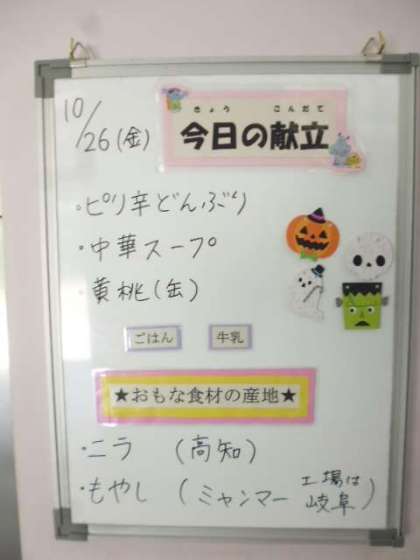 10/26(金)
きょう こんだて
今日の献立
・ピリ辛どんぶり
・中華スープ
・黄桃(缶)
ごはん 牛乳
★おもな食材の産地★
・ニラ (高知)
・もやし (ミャンマー 工場は岐阜)